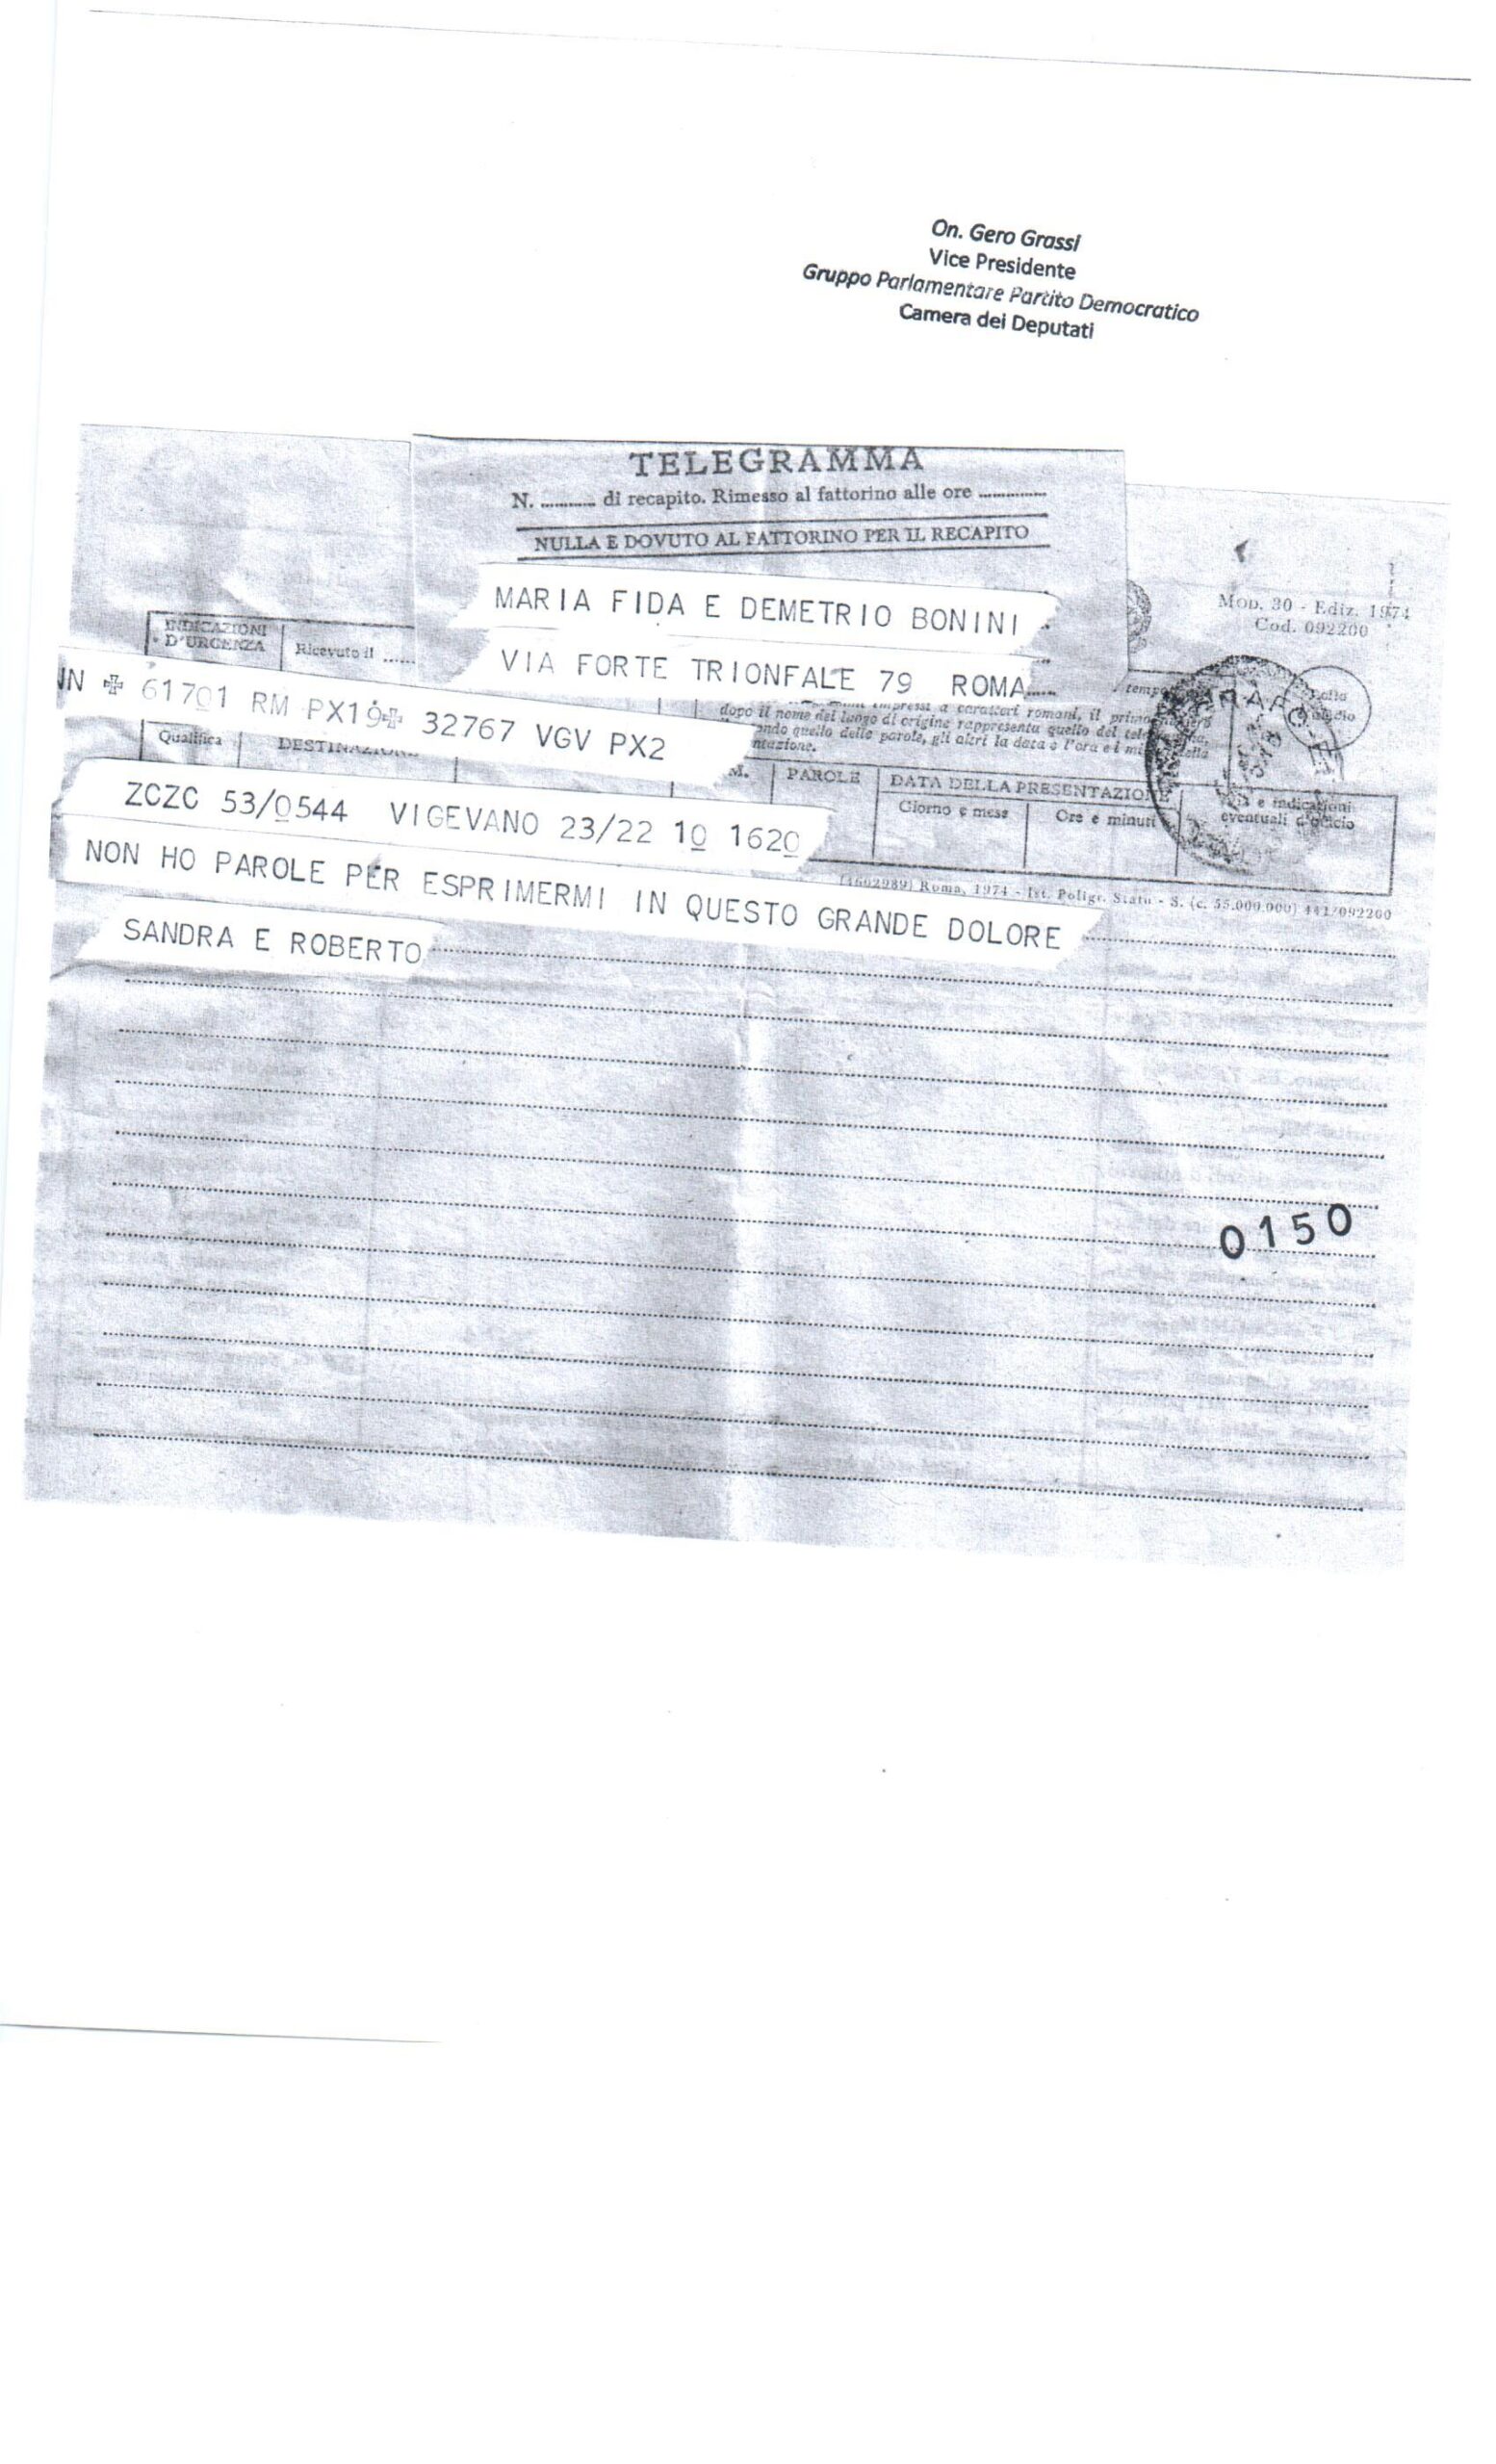 On. Gero Grassi
Vice Presidente
Gruppo Parlamentare Partito Democratico
Camera dei Deputati
TELEGRAMMA
N. ............ di recapito. Rimesso al fattorino alle ore ...............
NULLA E DOVUTO AL FATTORINO PER IL RECAPITO
MARIA FIDA E DEMETRIO BONINI
VIA FORTE TRIONFALE 79 ROMA
Mod. 30 - Ediz. 1974
Cod. 092200
INDICAZIONI
D'URGENZA
Ricevuto il ......
NN ✠ 61701 RM PX19✠ 32767 VGV PX2
impressi a caratteri romani, il primo
dopo il nome del luogo di origine rappresenta quello del
quello delle parole, gli altri la data e l'ora e i
Qualifica
DESTINAZIONE
PAROLE
DATA DELLA PRESENTAZIONE
Giorno e mese
Ore e minuti
e indicazioni
eventuali d'ufficio
ZCZC 53/0544 VIGEVANO 23/22 10 1620
(1602989) Roma, 1974 - Ist. Poligr. Stato - S. (c. 55.000.000) 441/092200
NON HO PAROLE PER ESPRIMERMI IN QUESTO GRANDE DOLORE
SANDRA E ROBERTO
0150